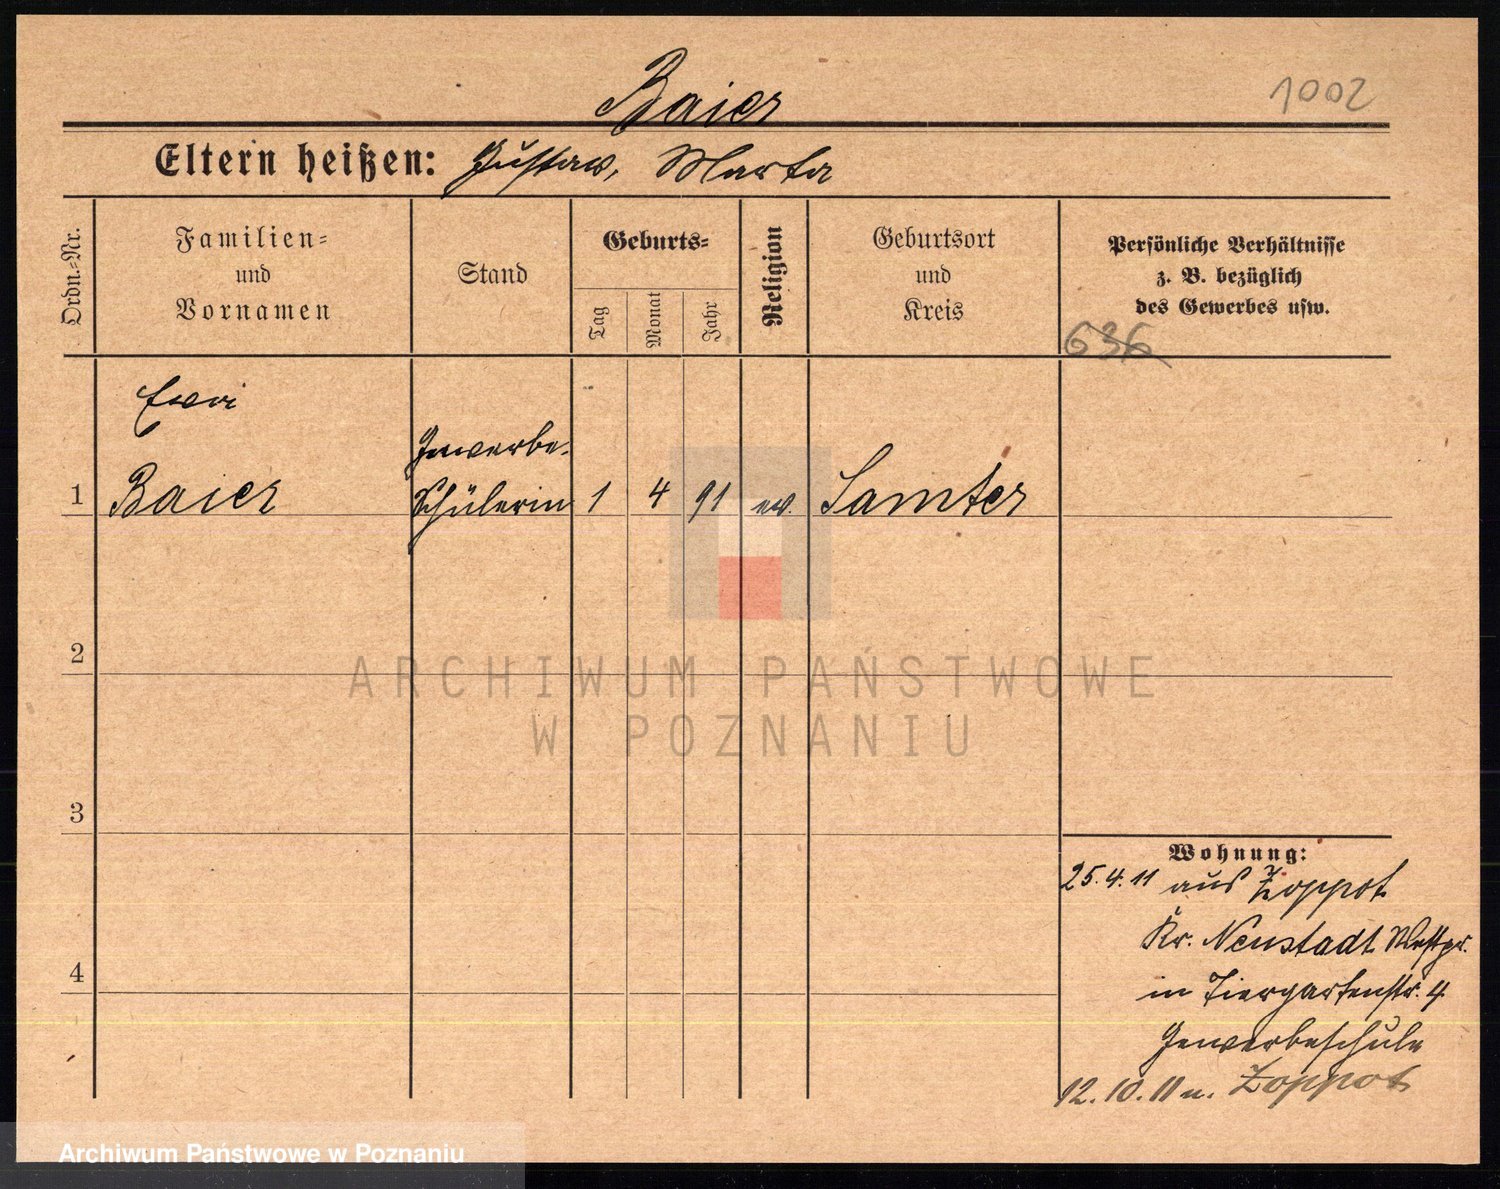 1002
Baier
Eltern heißen: Gustav, Marta
Ordn.-Nr.
Familien-
und
Vornamen
Stand
Geburts-
Tag
Monat
Jahr
Religion
Geburtsort
und
Kreis
Persönliche Verhältnisse
z. B. bezüglich
des Gewerbes usw.
636
Gewerbe-
1 Baier Schülerin 1 4 91 ev. Samter
2
3
4
Wohnung:
25.4.11 aus Zoppot
Kr. Neustadt Westpr.
in Tiergartenstr. 4
Gewerbeschule
12.10.11 n. Zoppot
ARCHIWUM PAŃSTWOWE
W POZNANIU
Archiwum Państwowe w Poznaniu